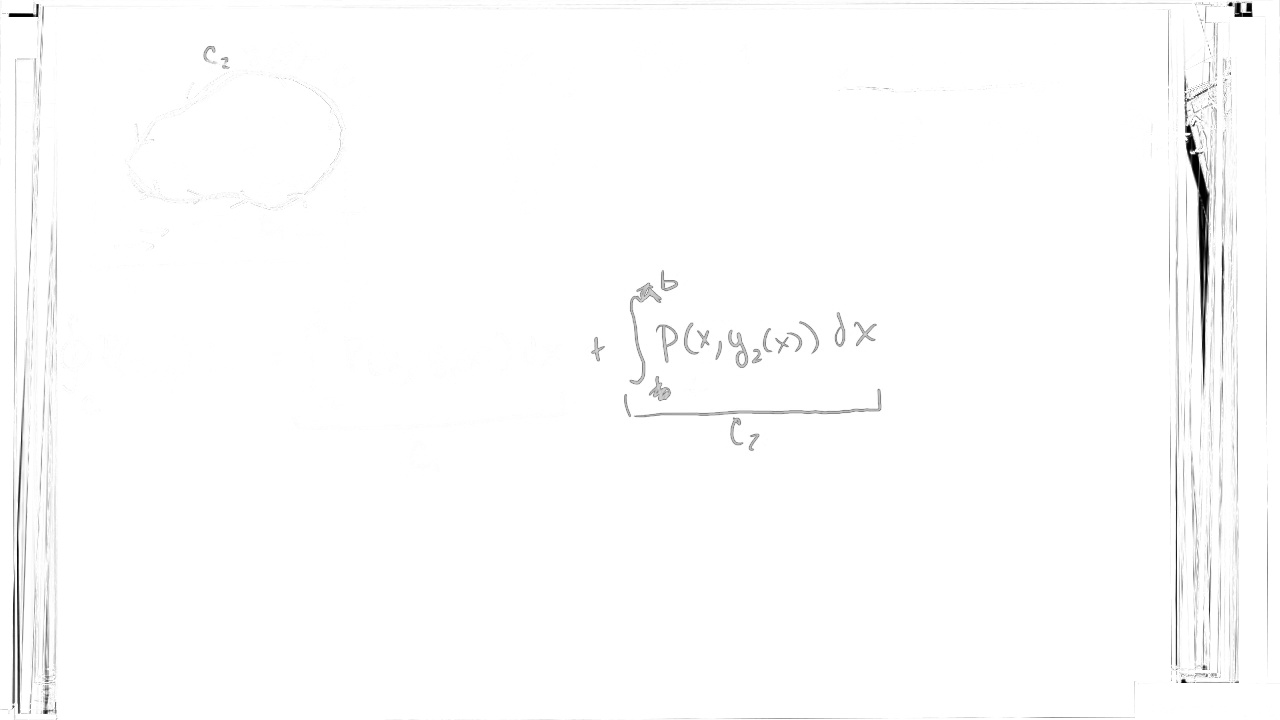 C₂
+ ∫ b P(x, y₂(x)) dx
C₂